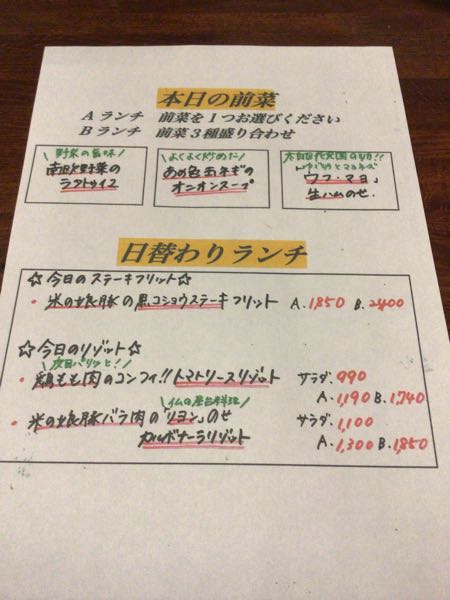 本日の前菜
Aランチ 前菜を1つお選びください
Bランチ 前菜3種盛り合わせ
野菜の旨味
南欧野菜の
ラタトゥイユ
よくよく炒めた
あめ色玉ネギの
オニオンスープ
ゆでたまごとマヨネーズ
「ウフ・マヨ」
生ハムのせ
日替わりランチ
☆今日のステーキフリット☆
・米の娘豚の黒コショウステーキフリット A.1,850 B.2400
☆今日のリゾット☆
皮目パリッと!
・鶏もも肉のコンフィ!!トマトソースリゾット サラダ.990
A.1,190 B.1,740
仏の屋台料理
・米の娘豚バラ肉の「リヨン」のせ サラダ.1,100
カルボナーラリゾット A.1,300 B.1,850